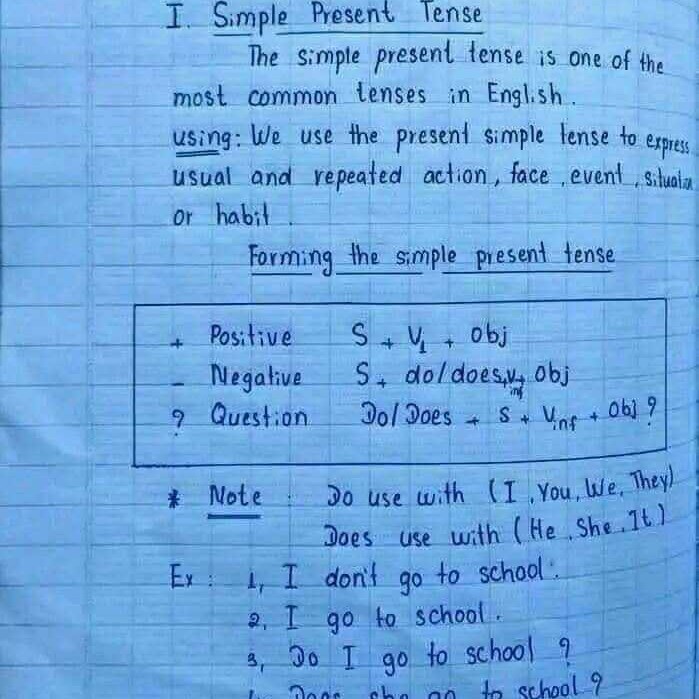 I. Simple Present Tense
The simple present tense is one of the
most common tenses in English.
using: We use the present simple tense to express
usual and repeated action, face, event, situation
or habit.
Forming the simple present tense
+ Positive S + V1 + obj
- Negative S + do/does + V inf + obj
? Question Do/Does + S + Vinf + Obj ?
* Note : Do use with (I, You, We, They)
Does use with (He, She, It)
Ex : 1, I don't go to school.
2, I go to school.
3, Do I go to school ?
Does she go to school ?